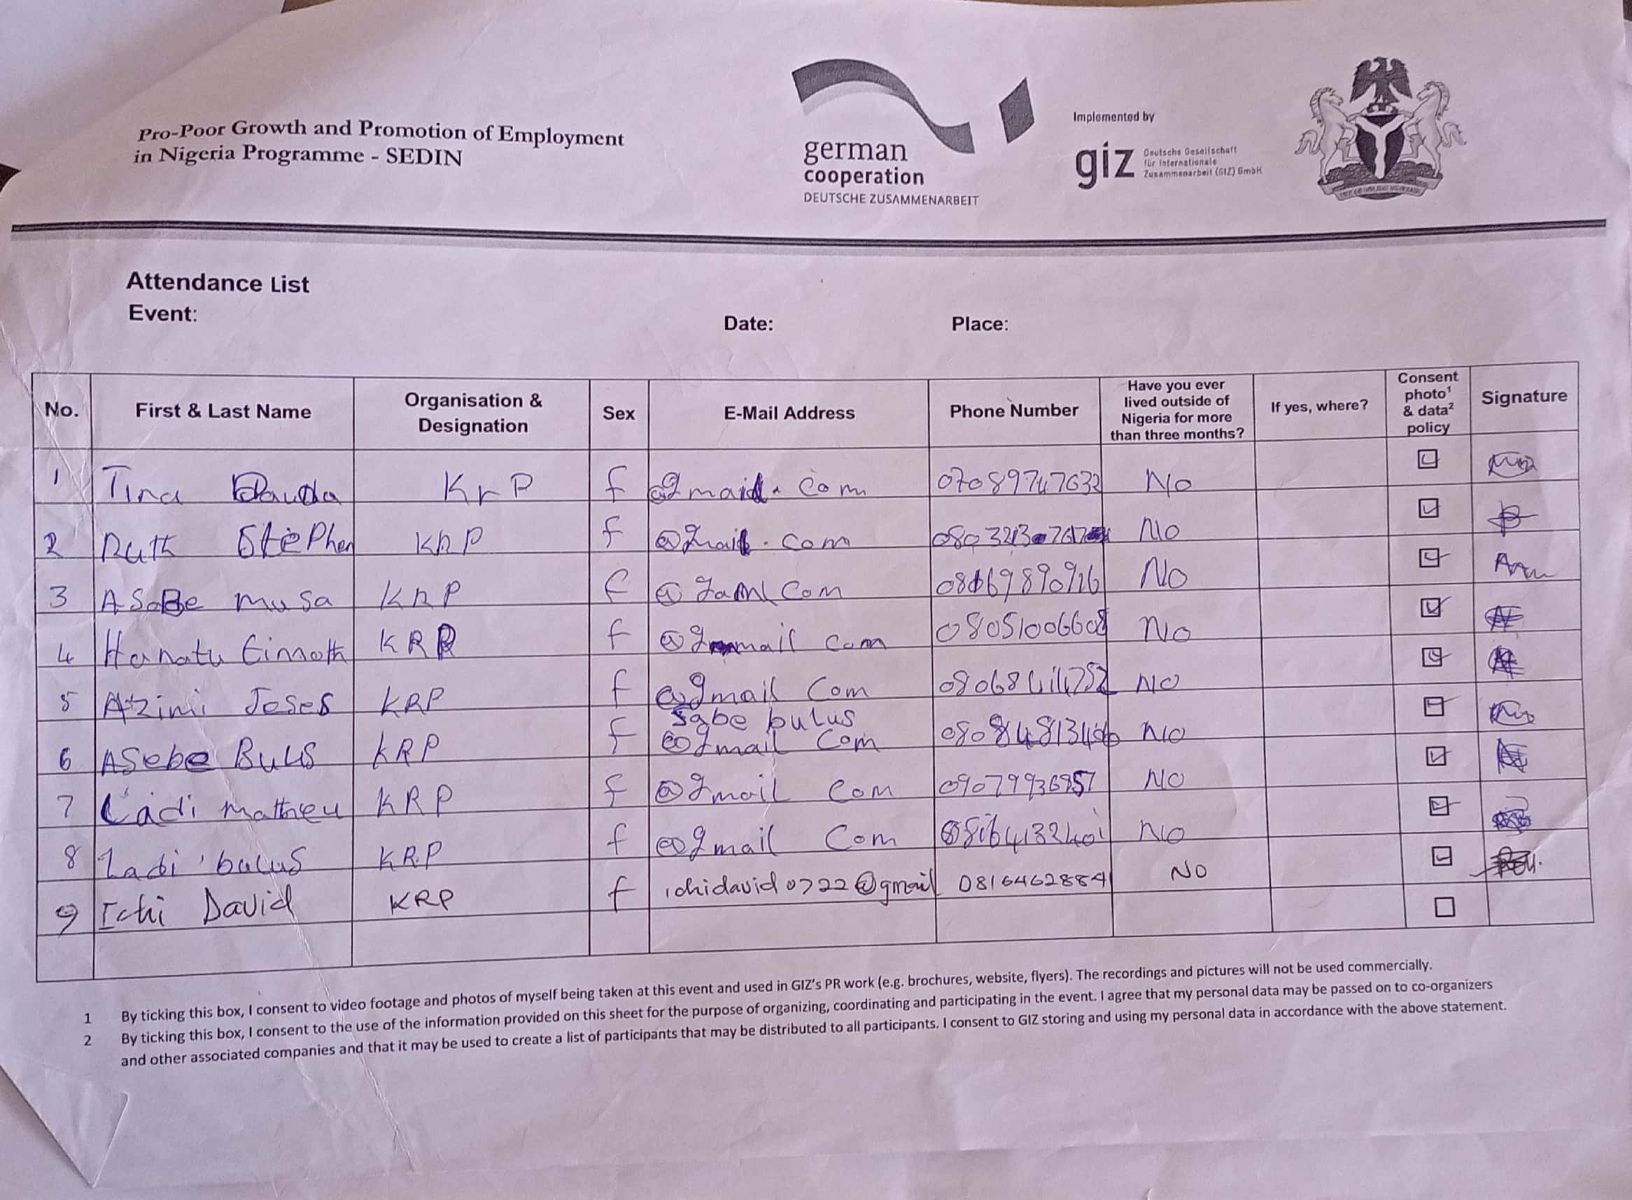 Pro-Poor Growth and Promotion of Employment
in Nigeria Programme - SEDIN
german
cooperation
DEUTSCHE ZUSAMMENARBEIT
Implemented by
giz
Deutsche Gesellschaft
für Internationale
Zusammenarbeit (GIZ) GmbH
Attendance List
Event:
Date: Place:
No. First & Last Name Organisation & Designation Sex E-Mail Address Phone Number Have you ever lived outside of Nigeria for more than three months? If yes, where? Consent photo¹ & data² policy Signature
1 Tina Dauda KrP f @gmail.com 07089747632 No
2 Ruth StePhen KRP f @gmail.com No
3 ASaBe musa KRP f No
4 Hanatu timoth KRP f @gmail com 08051006608 No
5 Joses KRP f @gmail Com No
6 ASebe BulS KRP f sgbe bulus @gmail Com No
7 Ladi mathew KRP f @gmail Com No
8 Ladi bulus KRP f @gmail Com No
9 Ichi David KRP f ichidavid0722@gmail 0816462884 No
1 By ticking this box, I consent to video footage and photos of myself being taken at this event and used in GIZ's PR work (e.g. brochures, website, flyers). The recordings and pictures will not be used commercially.
2 By ticking this box, I consent to the use of the information provided on this sheet for the purpose of organizing, coordinating and participating in the event. I agree that my personal data may be passed on to co-organizers
and other associated companies and that it may be used to create a list of participants that may be distributed to all participants. I consent to GIZ storing and using my personal data in accordance with the above statement.